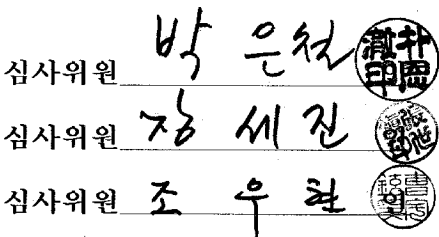 심사위원 박은철
심사위원 장세진
심사위원 조우현